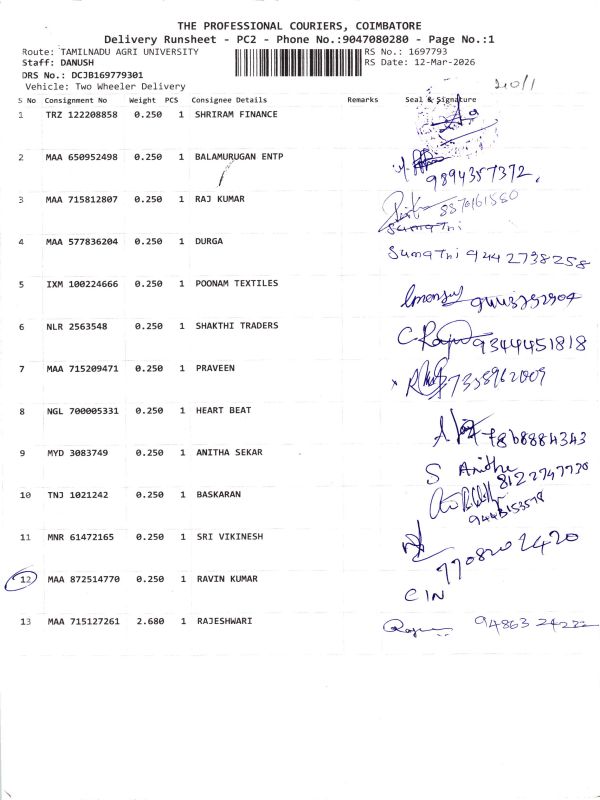 THE PROFESSIONAL COURIERS, COIMBATORE
Delivery Runsheet - PC2 - Phone No.:9047080280 - Page No.:1
Route: TAMILNADU AGRI UNIVERSITY RS No.: 1697793
Staff: DANUSH RS Date: 12-Mar-2026
DRS No.: DCJB169779301
Vehicle: Two Wheeler Delivery
S No Consignment No Weight PCS Consignee Details Remarks Seal & Signature
1 TRZ 122208858 0.250 1 SHRIRAM FINANCE
2 MAA 650952498 0.250 1 BALAMURUGAN ENTP
9894357372.
3 MAA 715812807 0.250 1 RAJ KUMAR 8870161580
Sumathi
4 MAA 577836204 0.250 1 DURGA
Sumathi 9442738258
5 IXM 100224666 0.250 1 POONAM TEXTILES
6 NLR 2563548 0.250 1 SHAKTHI TRADERS
9344451818
7 MAA 715209471 0.250 1 PRAVEEN
7358962009
8 NGL 700005331 0.250 1 HEART BEAT
9 MYD 3083749 0.250 1 ANITHA SEKAR
S Anitha
8122747730
10 TNJ 1021242 0.250 1 BASKARAN
11 MNR 61472165 0.250 1 SRI VIKINESH
7708202420
12 MAA 872514770 0.250 1 RAVIN KUMAR
CIN
13 MAA 715127261 2.680 1 RAJESHWARI 9486324222